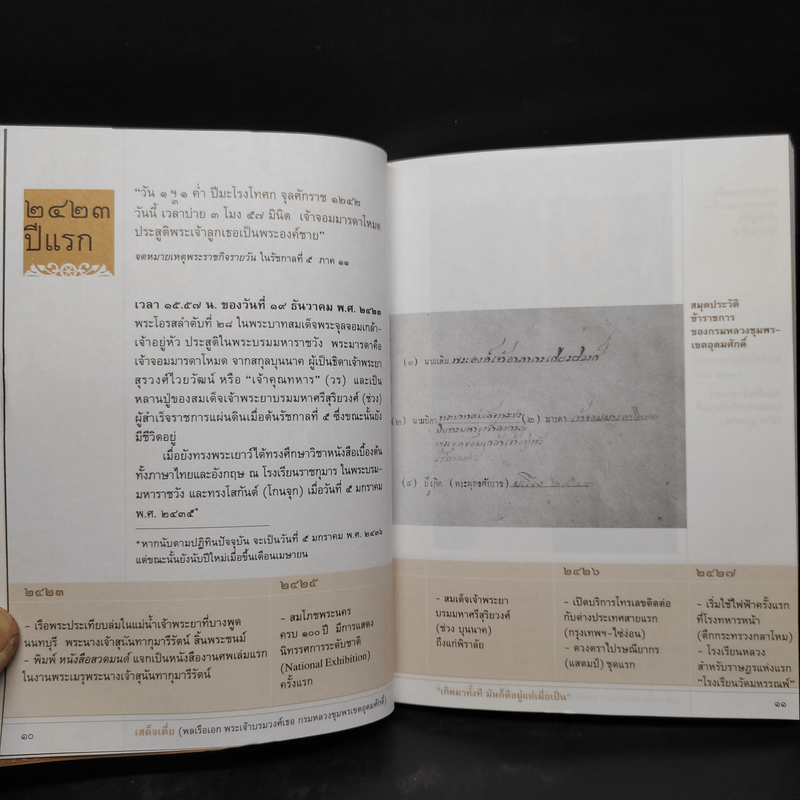 ๒๔๒๓
ปีแรก
"วัน ๑ ๑ ค่ำ ปีมะโรงโทศก จุลศักราช ๑๒๔๒
วันนี้ เวลาบ่าย ๓ โมง ๕๗ มินิต เจ้าจอมมารดาโหมด
ประสูติพระเจ้าลูกเธอเป็นพระองค์ชาย"
จดหมายเหตุพระราชกิจรายวัน ในรัชกาลที่ ๕ ภาค ๑๑
เวลา ๑๕.๕๗ น. ของวันที่ ๑๙ ธันวาคม พ.ศ. ๒๔๒๓
พระโอรสลำดับที่ ๒๘ ในพระบาทสมเด็จพระจุลจอมเกล้า-
เจ้าอยู่หัว ประสูติในพระบรมมหาราชวัง พระมารดาคือ
เจ้าจอมมารดาโหมด จากสกุลบุนนาค ผู้เป็นธิดาเจ้าพระยา
สุรวงศ์ไวยวัฒน์ หรือ "เจ้าคุณทหาร" (วร) และเป็น
หลานปู่ของสมเด็จเจ้าพระยาบรมมหาศรีสุริยวงศ์ (ช่วง)
ผู้สำเร็จราชการแผ่นดินเมื่อต้นรัชกาลที่ ๕ ซึ่งขณะนั้นยัง
มีชีวิตอยู่
เมื่อยังทรงพระเยาว์ได้ทรงศึกษาวิชาหนังสือเบื้องต้น
ทั้งภาษาไทยและอังกฤษ ณ โรงเรียนราชกุมาร ในพระบรม-
มหาราชวัง และทรงโสกันต์ (โกนจุก) เมื่อวันที่ ๕ มกราคม
พ.ศ. ๒๔๓๕*
*หากนับตามปฏิทินปัจจุบัน จะเป็นวันที่ ๕ มกราคม พ.ศ. ๒๔๓๖
แต่ขณะนั้นยังนับปีใหม่เมื่อขึ้นเดือนเมษายน
๒๔๒๓
- เรือพระประเทียบล่มในแม่น้ำเจ้าพระยาที่บางพูด
นนทบุรี พระนางเจ้าสุนันทากุมารีรัตน์ สิ้นพระชนม์
- พิมพ์ หนังสือสวดมนต์ แจกเป็นหนังสืองานศพเล่มแรก
ในงานพระเมรุพระนางเจ้าสุนันทากุมารีรัตน์
๒๔๒๕
- สมโภชพระนคร
ครบ ๑๐๐ ปี มีการแสดง
นิทรรศการระดับชาติ
(National Exhibition)
ครั้งแรก
๑๐
เสด็จเตี่ย (พลเรือเอก พระเจ้าบรมวงศ์เธอ กรมหลวงชุมพรเขตอุดมศักดิ์)
สมุดประวัติ
ข้าราชการ
ของกรมหลวงชุมพร-
เขตอุดมศักดิ์
(๑) นามเดิม
(๒) นามบิดา (๒) มารดา
(๔) ปีเกิด (พระพุทธศักราช)
- สมเด็จเจ้าพระยา
บรมมหาศรีสุริยวงศ์
(ช่วง บุนนาค)
ถึงแก่พิราลัย
๒๔๒๖
- เปิดบริการโทรเลขติดต่อ
กับต่างประเทศสายแรก
(กรุงเทพฯ-ไซ่ง่อน)
- ดวงตราไปรษณียากร
(แสตมป์) ชุดแรก
๒๔๒๗
- เริ่มใช้ไฟฟ้าครั้งแรก
ที่โรงทหารหน้า
(ตึกกระทรวงกลาโหม)
- โรงเรียนหลวง
สำหรับราษฎรแห่งแรก
"โรงเรียนวัดมหรรณพ์"
"เกิดมาทั้งที มันก็ดีอยู่แต่เมื่อเป็น"
๑๑